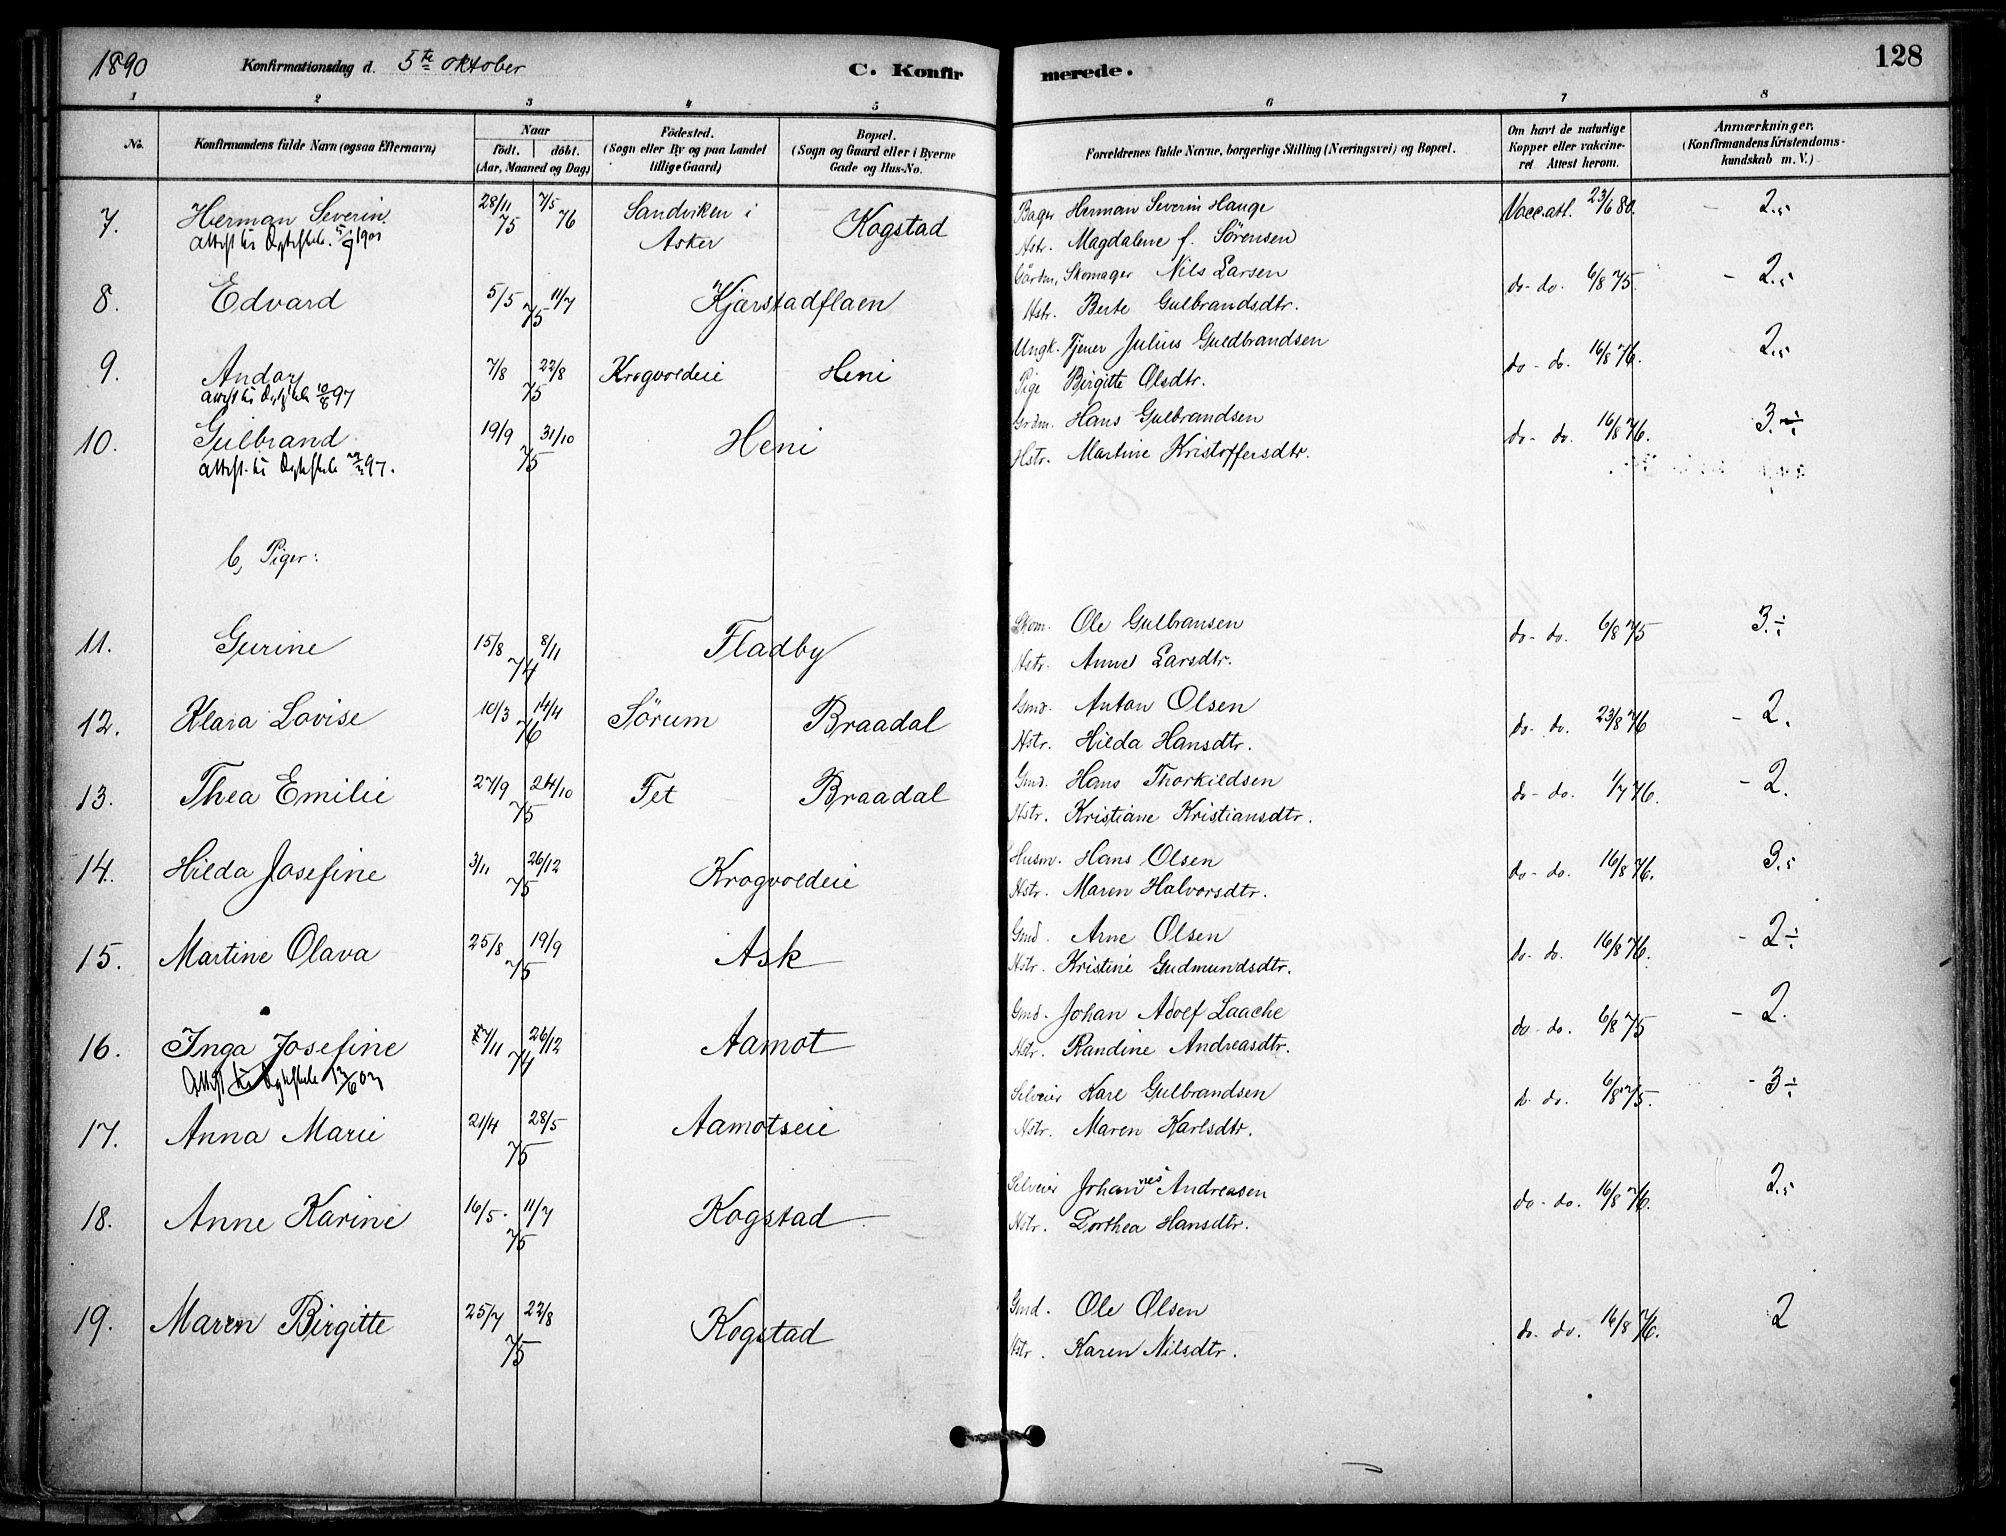 1890 Konfirmationsdag d. 5te Oktober C. Konfirmerede. 128
1 2 3 4 5 6 7 8
No. Konfirmandens fulde Navn (ogsaa Efternavn) Naar født. døbt. (Aar, Maaned og Dag) Fødested. (Sogn eller By og paa Landet tillige Gaard) Bopæl. (Sogn og Gaard eller i Byerne Gade og Hus-No. Forældrenes fulde Navne, borgerlige Stilling (Næringsvei) og Bopæl. Om havt de naturlige Kopper eller vakcineret. Attest herom. Anmærkninger. (Konfirmandens Kristendomskundskab m. V.)
7. Herman Severin 28/11 75 7/5 76 Sandviken i Asker Kogstad Bager Herman Severin Hauge Vacc.att. 23/6 80. - 2.5
Attest til 5/9 1901 Hstr. Magdalene f. Sörensen
8. Edvard 5/5 11/7 75 Kjærstadflaen Gårdm. Skomager Nils Larsen do - do. 6/8 75. - 2.5
Hstr. Berte Gulbrandsdtr.
9. Andor 7/8 22/8 75 Krogvoldeie Heni Ungk. Tjener Julius Guldbrandsen do - do. 16/8 76. 2.5
attest til 10/8 97 Pige Birgitte Olsdtr.
10. Gulbrand 19/9 31/10 75 Heni Grdm. Hans Gulbrandsen do - do. 16/8 76. 3.÷
Attest til 97. Hstr. Martine Kristoffersdtr.
b, Piger:
11. Gurine 15/8 8/11 74 Fladby Skom. Ole Gulbransen do - do. 6/8 75 3.÷
Hstr. Anne Larsdtr.
12. Klara Lovise 10/3 14/4 76 Sörum Braadal Gmd. Anton Olsen do - do. 23/8 76 - 2.
Hstr. Hilda Hansdtr.
13. Thea Emilie 27/9 24/10 75 Fet Braadal Gmd. Hans Thorkildsen do - do. 1/7 76. - 2.
Hstr. Kristiane Kristiansdtr.
14. Hilda Josefine 3/11 26/12 75 Krogvoldeie Husm. Hans Olsen do - do. 16/8 76. 3.5
Hstr. Maren Halvorsdtr.
15. Martine Olava 25/8 19/9 75 Ask Gmd. Arne Olsen do - do. 16/8 76. - 2÷
Hstr. Kristine Gudmundsdtr.
16. Inga Josefine 7/11 26/12 74 Aamot Gmd. Johan Adolf Laache do - do. 6/8 75 - 2.
Attest til Hstr. Randine Andreasdtr.
17. Anna Marie 21/4 28/5 75 Aamotseie Selveier Karl Gulbrandsen do - do. 6/8 75. - 3÷
Hstr. Maren Karlsdtr.
18. Anne Karine 16/5. 11/7 75 Kogstad Selveier Johannes Andreasen do - do. 16/8 76. 2.5
Hstr. Dorthea Hansdtr.
19. Maren Birgitte 25/7 22/8 75 Kogstad Gmd. Ole Olsen do - do. 16/8 76. 2
Hstr. Karen Nilsdtr.